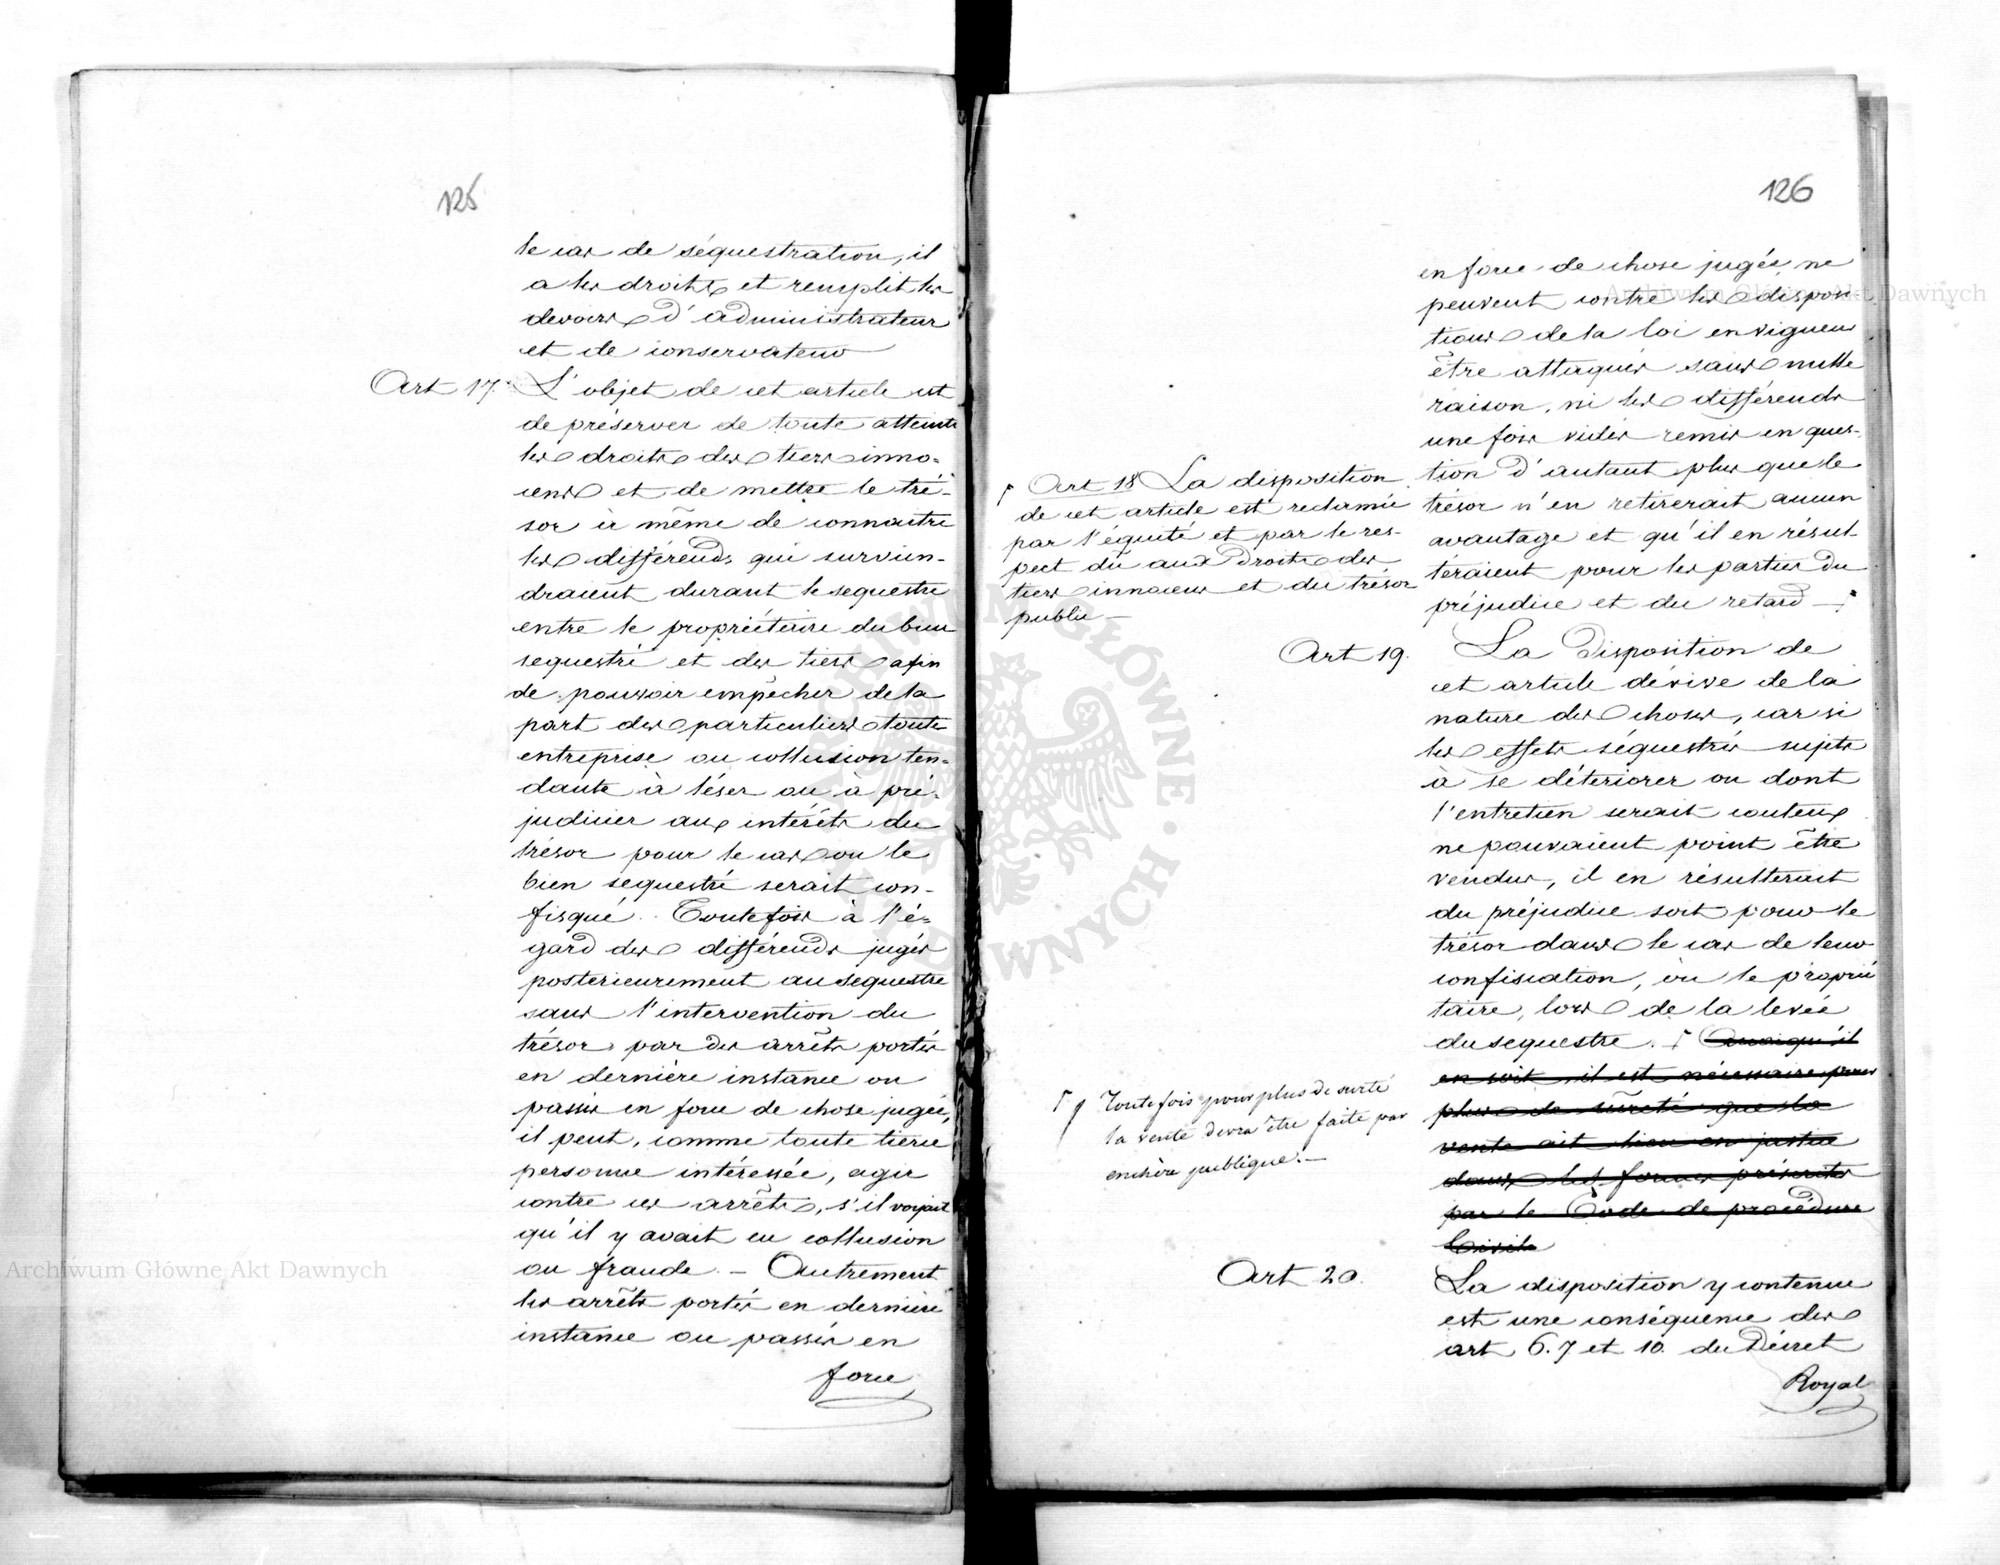 125
le cas de séquestration, il
a les droits et remplit les
devoirs d'administrateur
et de conservateur
Art 17. L'objet de cet article est
de préserver de toute atteinte
les droits des tiers inno-
cens et de mettre le tré-
sor à même de connaitre
les différends qui survien-
draient durant le sequestre
entre le propriétaire du bien
sequestré et des tiers afin
de pouvoir empêcher de la
part des particuliers toute
entreprise ou collusion ten-
dante à léser ou à pré-
judicier aux intérêts du
trésor pour le cas ou le
bien sequestré serait con-
fisqué. Toutefois à l'é-
gard des différends jugés
posterieurement au sequestre
sans l'intervention du
trésor par des arrêts portés
en dernière instance ou
passés en force de chose jugée,
il peut, comme toute tierce
personne intéressée, agir
contre ces arrêts, s'il voyait
qu'il y avait eu collusion
ou fraude. – Autrement
les arrêts portés en dernière
instance ou passés en
force
126
en force de chose jugée ne
peuvent contre les disposi-
tions de la loi en vigueur
être attaqués sans nulle
raison, ni les différends
une fois vidés remis en ques-
tion d'autant plus que le
trésor n'en retirerait aucun
avantage et qu'il en résul-
teraient pour les parties du
préjudice et du retard –
Art 18 La disposition
de cet article est reclamée
par l'équité et par le res-
pect dû aux Droits des
tiers innocens et du trésor
public –
Art 19. La Disposition de
cet article dérive de la
nature des choses, car si
les effets séquestrés sujets
à se déteriorer ou dont
l'entretien serait couteux
ne pouvaient point être
vendus, il en résulterait
du préjudice soit pour le
trésor dans le cas de leur
confiscation, ou le proprié
taire, lors de la levée
du sequestre. Quoiqu'il
en soit il est nécessaire pour
plus de sûreté que la
vente ait lieu en justice
dans les formes préscrites
par le Code de procédure
Civile
Toutefois pour plus de sureté
la vente devra être faite par
enchère publique. –
Art 20. La disposition y contenue
est une conséquence des
art 6. 7 et 10. du Décret
Royal
Archiwum Główne Akt Dawnych
Archiwum Główne Akt Dawnych